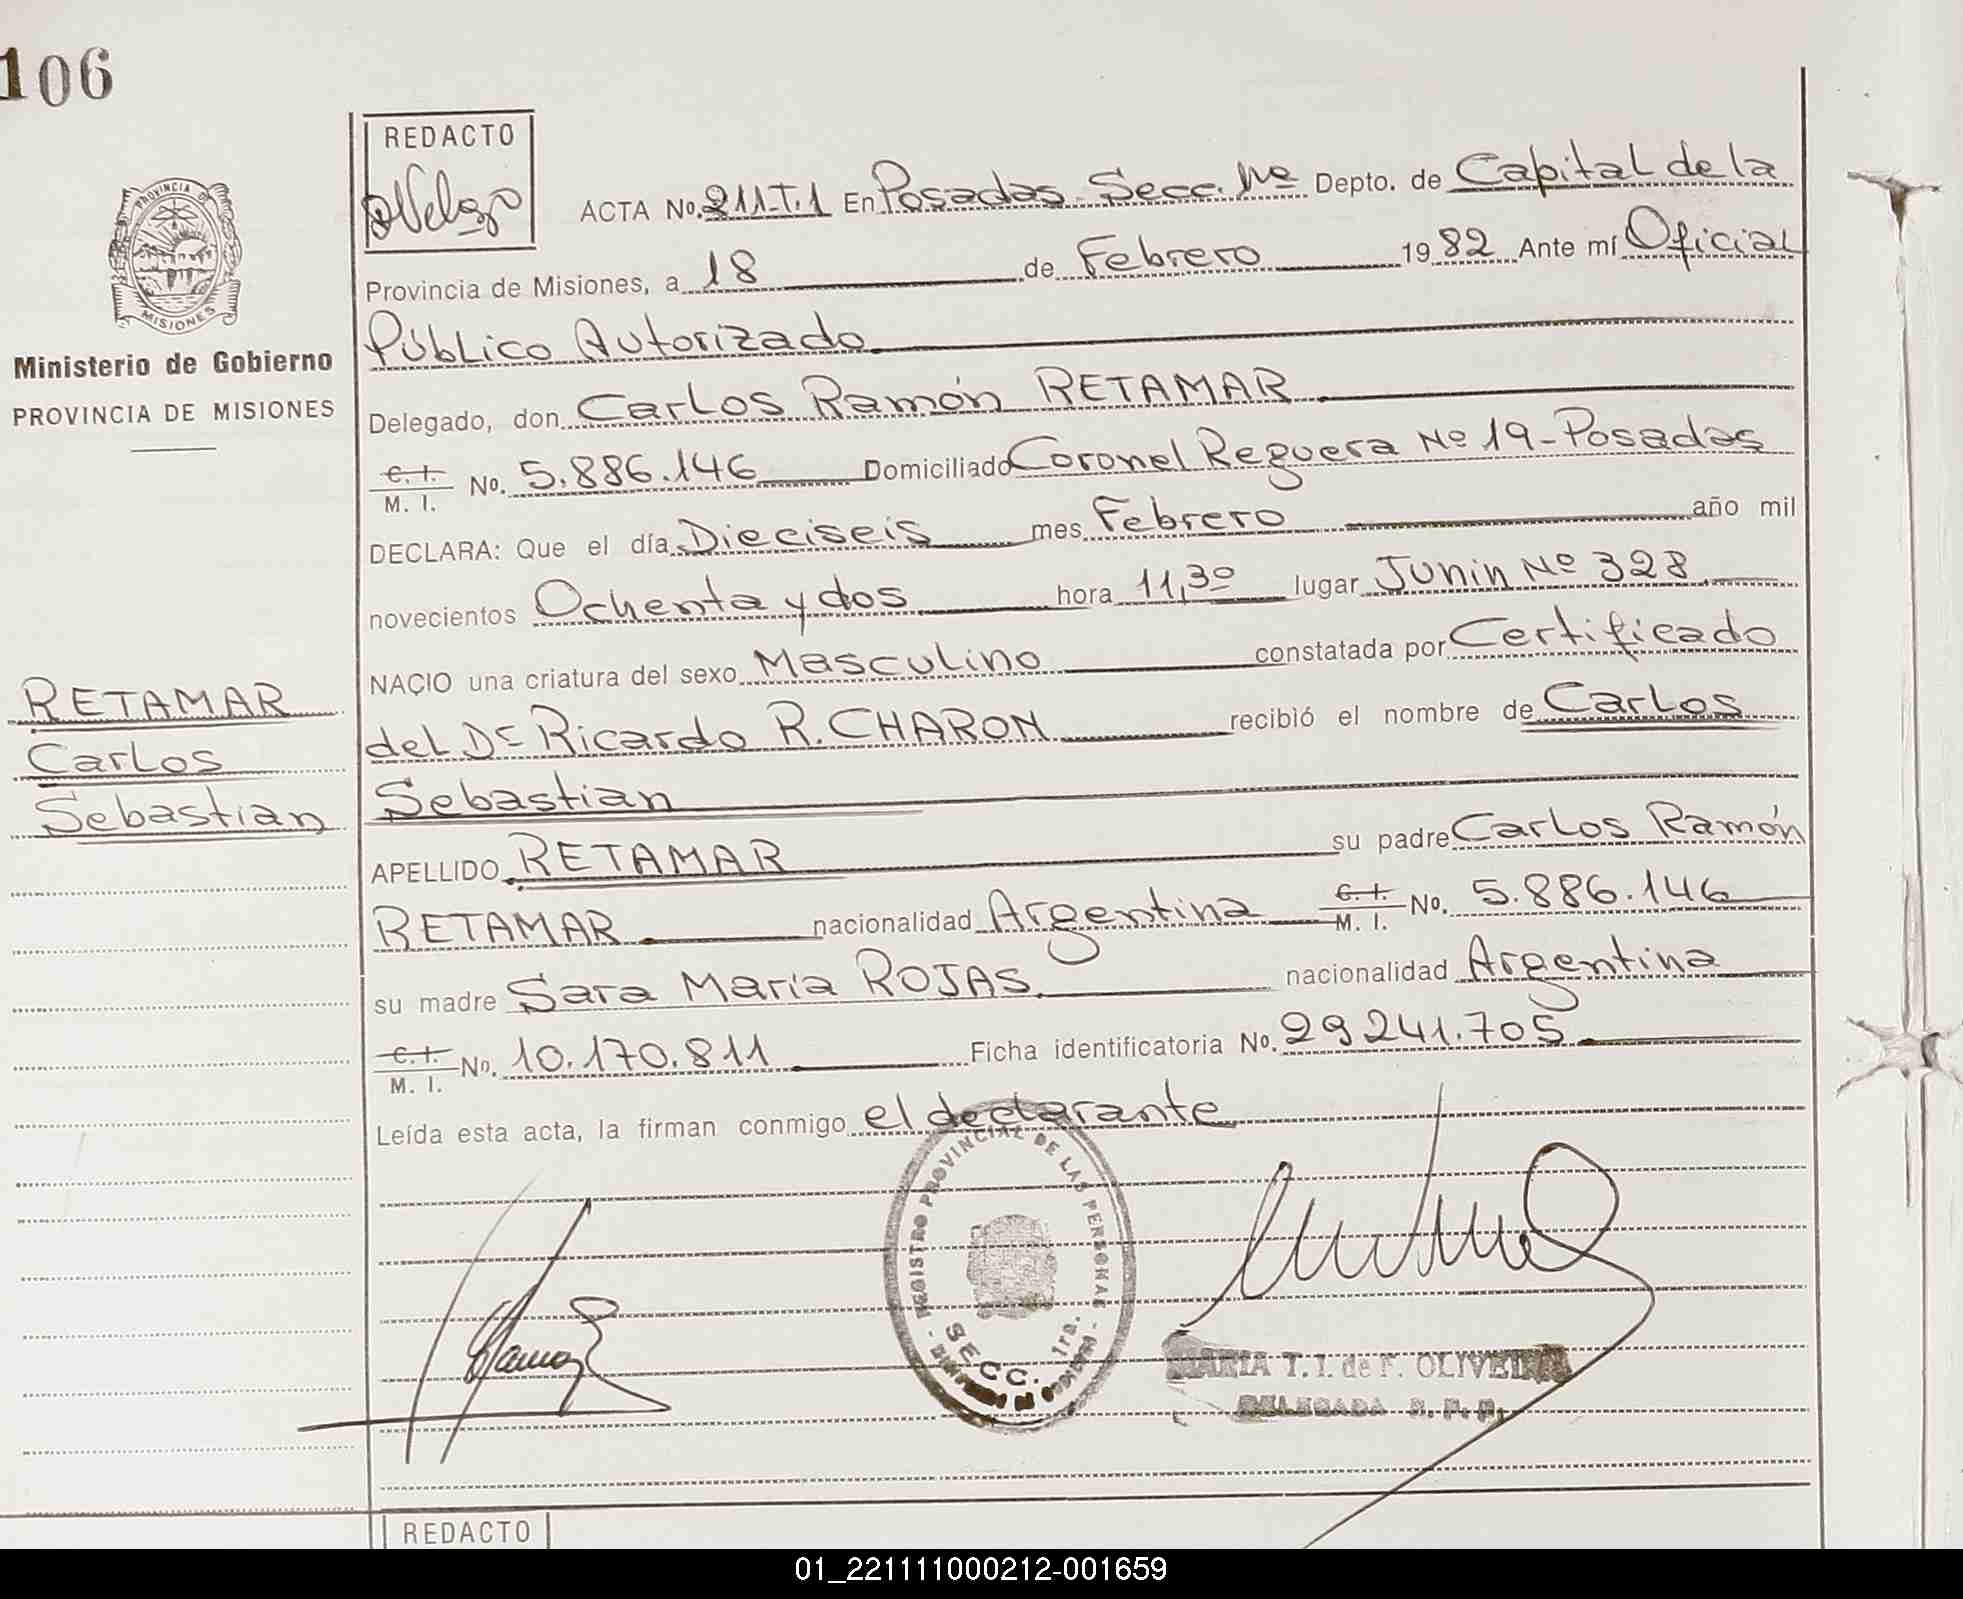 106
REDACTO
PROVINCIA DE
MISIONES
Ministerio de Gobierno
PROVINCIA DE MISIONES
ACTA No. 211-T.1 En Posadas Secc. 1ra Depto. de Capital de la
Provincia de Misiones, a 18 de Febrero 1982 Ante mí Oficial
Público Autorizado
Delegado, don Carlos Ramón RETAMAR
C. I. M. I. No. 5.886.146 Domiciliado Coronel Reguera Nº 19-Posadas
DECLARA: Que el día Dieciseis mes Febrero año mil
novecientos Ochenta y dos hora 11,30 lugar Junin Nº 328
NACIO una criatura del sexo Masculino constatada por Certificado
del Dr Ricardo R. CHARON recibió el nombre de Carlos
Sebastian
APELLIDO RETAMAR su padre Carlos Ramón
RETAMAR nacionalidad Argentina C. I. M. I. No. 5.886.146
su madre Sara María ROJAS nacionalidad Argentina
C. I. M. I. No. 10.170.811 Ficha identificatoria No. 29241.705
Leída esta acta, la firman conmigo el declarante
RETAMAR
Carlos
Sebastian
REGISTRO PROVINCIAL DE LAS PERSONAS
SECC. 1ra.
MARIA T. I. de F. OLIVEIRA
DELEGADA R. P. P.
REDACTO
01_221111000212-001659